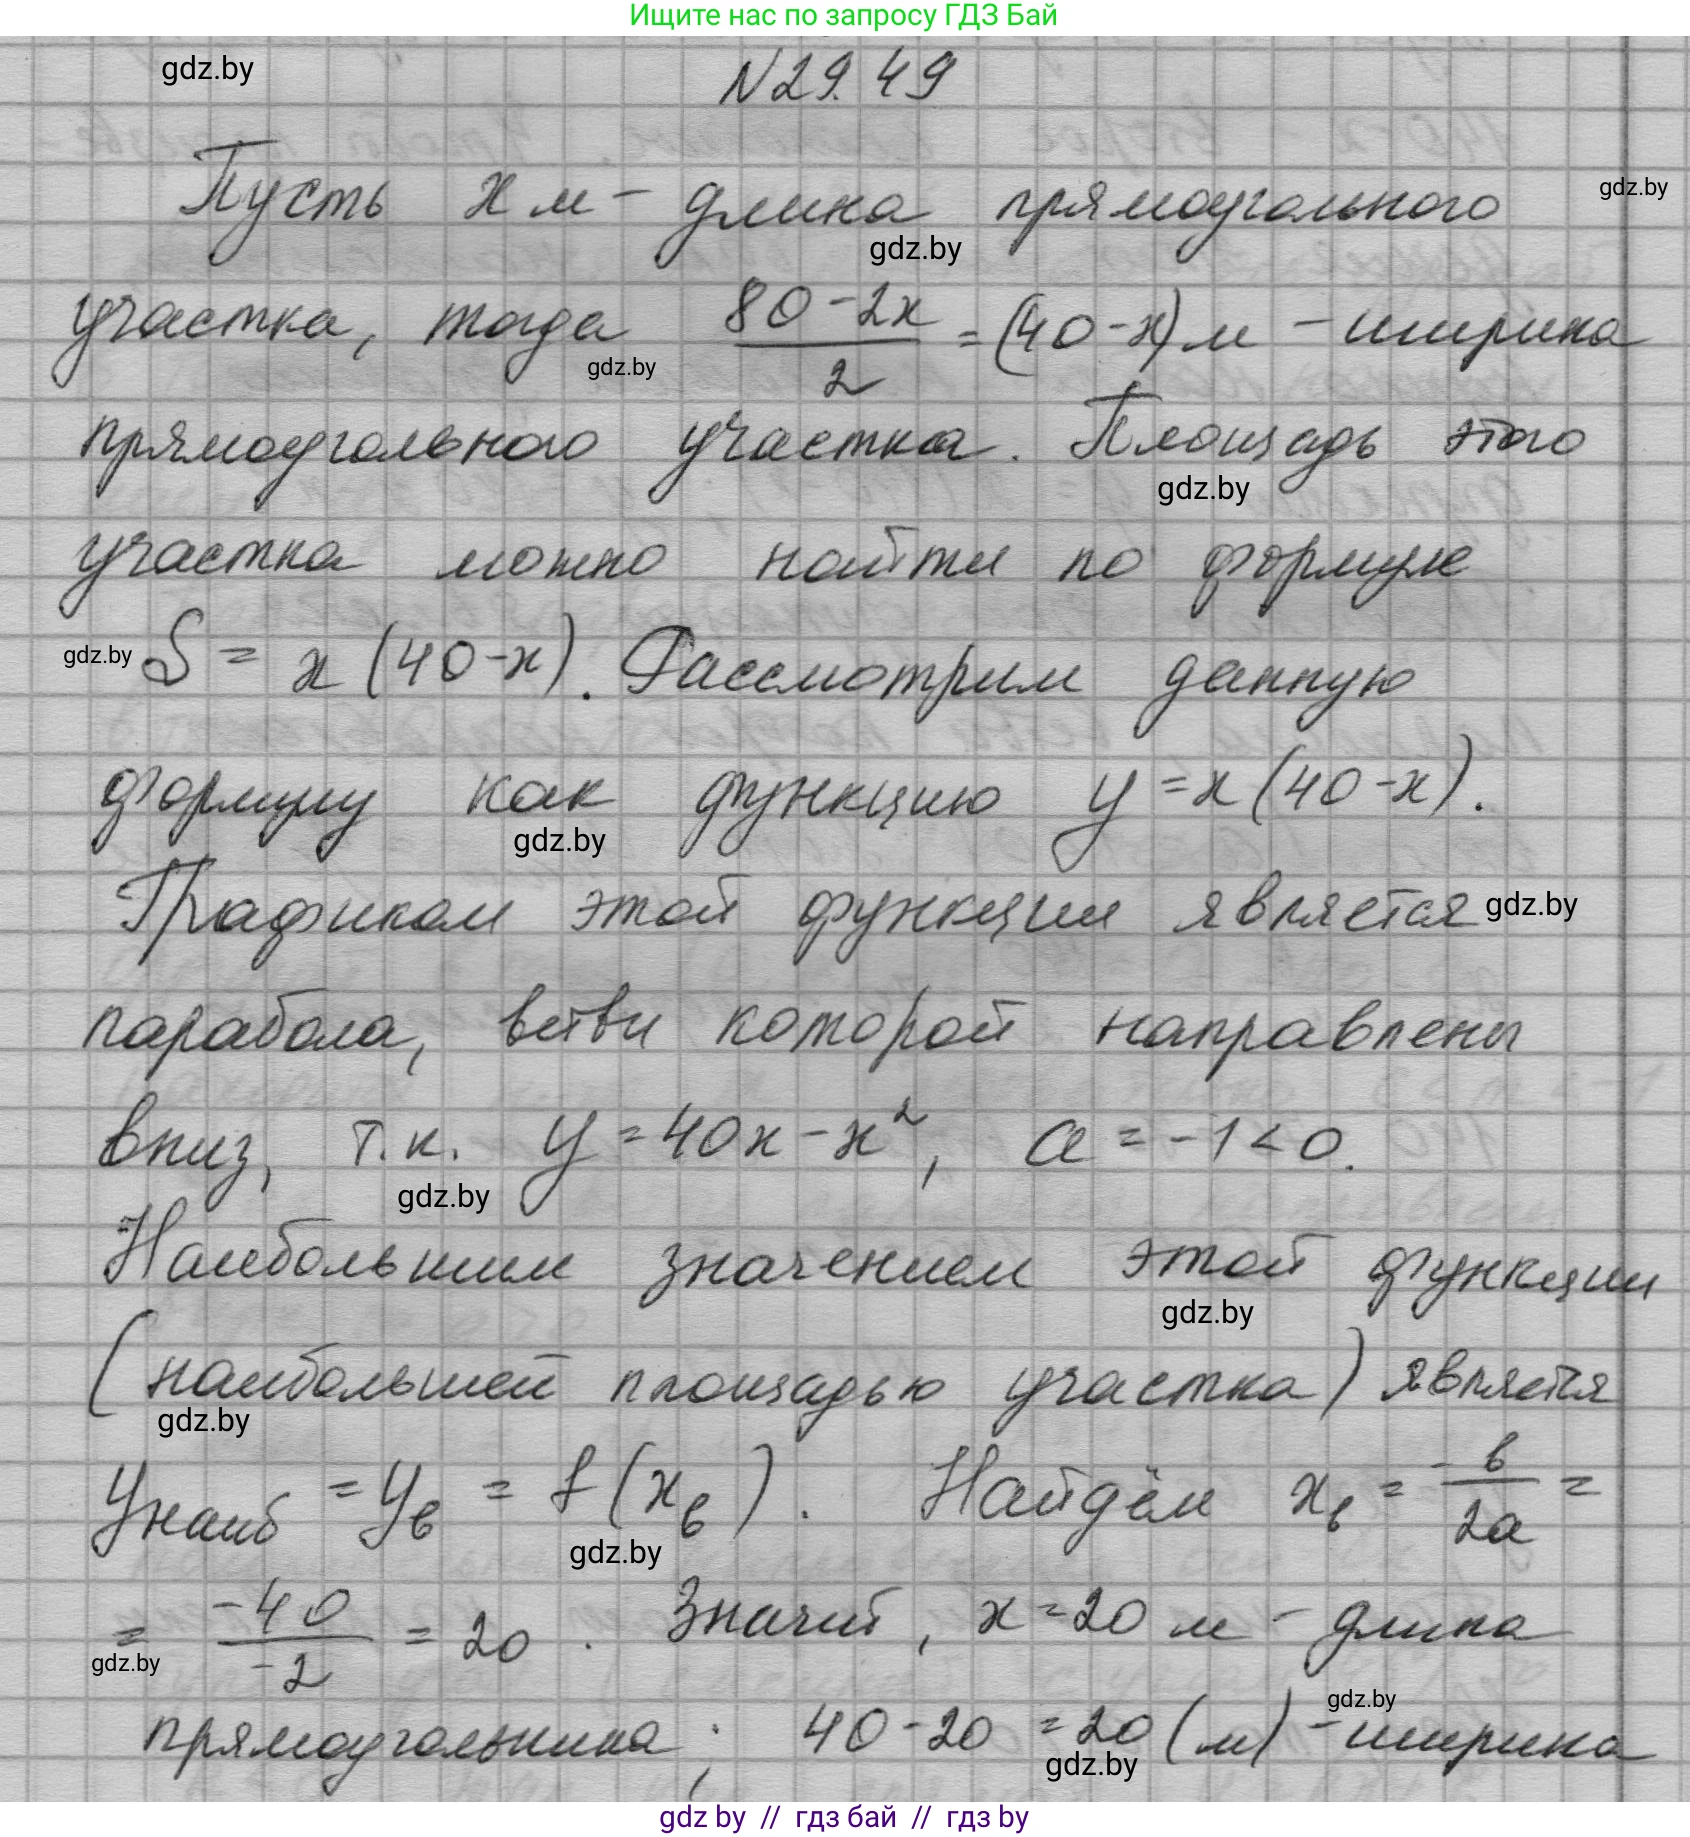 Ищите нас по запросу ГДЗ Бай
gdz.by
N29.49
Пусть x м - длина прямоугольного
gdz.by
gdz.by
участка, тогда 80-2x/2 = (40-x) м - ширина
gdz.by
прямоугольного участка. Площадь этого
gdz.by
участка можно найти по формуле
gdz.by
S = x (40-x). Рассмотрим данную
формулу как функцию y = x (40-x).
gdz.by
Графиком этой функции является
gdz.by
парабола, ветви которой направлены
вниз, т.к. y = 40x - x², a = -1 < 0.
gdz.by
Наибольшим значением этой функции
gdz.by
(наибольшей площадью участка) является
gdz.by
yнаиб = yв = f (xв). Найдём xв = -в/2a =
gdz.by
= -40/-2 = 20. Значит, x = 20 м - длина
gdz.by
gdz.by
прямоугольника; 40-20 = 20 (м) - ширина
gdz.by
gdz by // гдз бай // гдз by